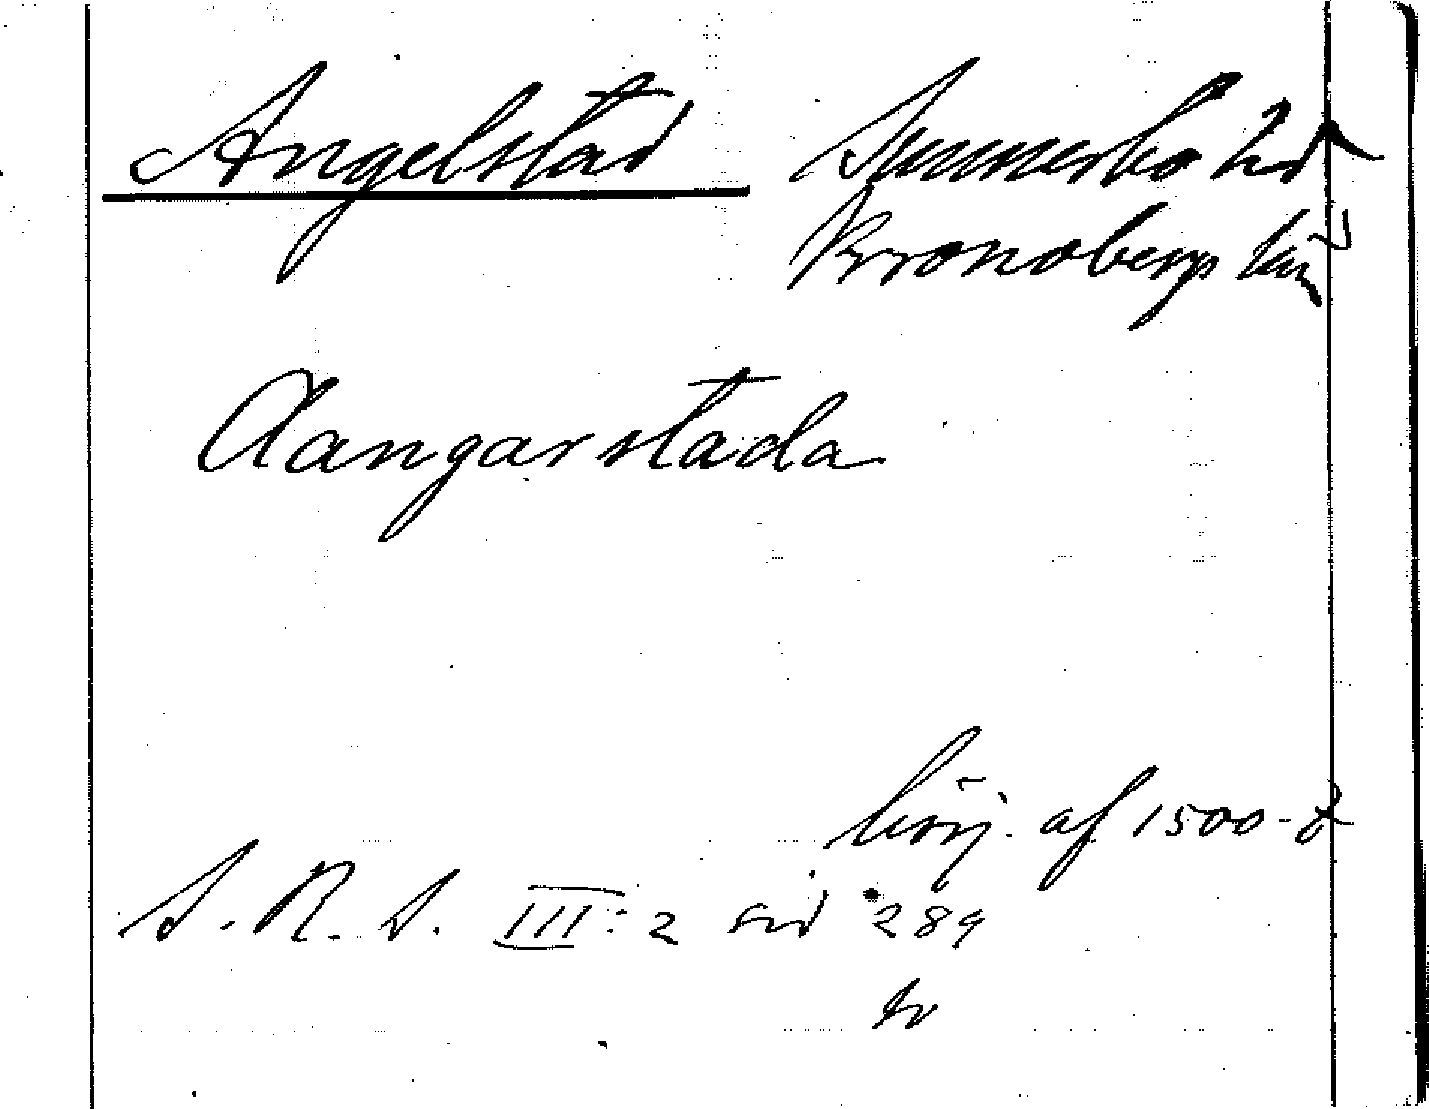 Angelstad Sunnerbo hd
Kronobergs län
Aangarstada
börj. af 1500-t
S. R. S. III:2 sid 289
tr